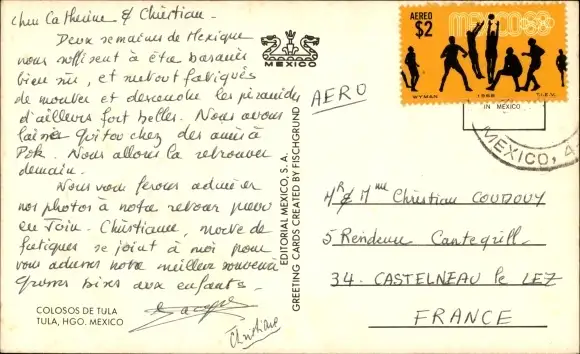 Chers Catherine & Christian -
Deux semaines de Mexique
nous suffisent à être basanés
bien sûr, et surtout fatigués
de monter et descendre les pyramides
d'ailleurs fort belles. Nous avons
laissé chez des amis à
Nous allons la retrouver
demain.
Nous vous ferons admirer
nos photos à notre retour prévu
en Juin. Christiane, morte de
fatigue se joint à moi pour
vous adresser notre meilleur souvenir
Grosses bises aux enfants.
Jacques
Christiane
COLOSOS DE TULA
TULA, HGO. MEXICO
MEXICO
EDITORIAL MEXICO, S. A.
GREETING CARDS CREATED BY FISCHGRUND
AERO
AEREO
$2
MEXICO68
WYMAN 1968 T.I.E.V.
IN MEXICO
MEXICO, 4
Mr & Mme Christian COUDOUY
5 Résidence Cantegrill
34. CASTELNEAU le LEZ
FRANCE